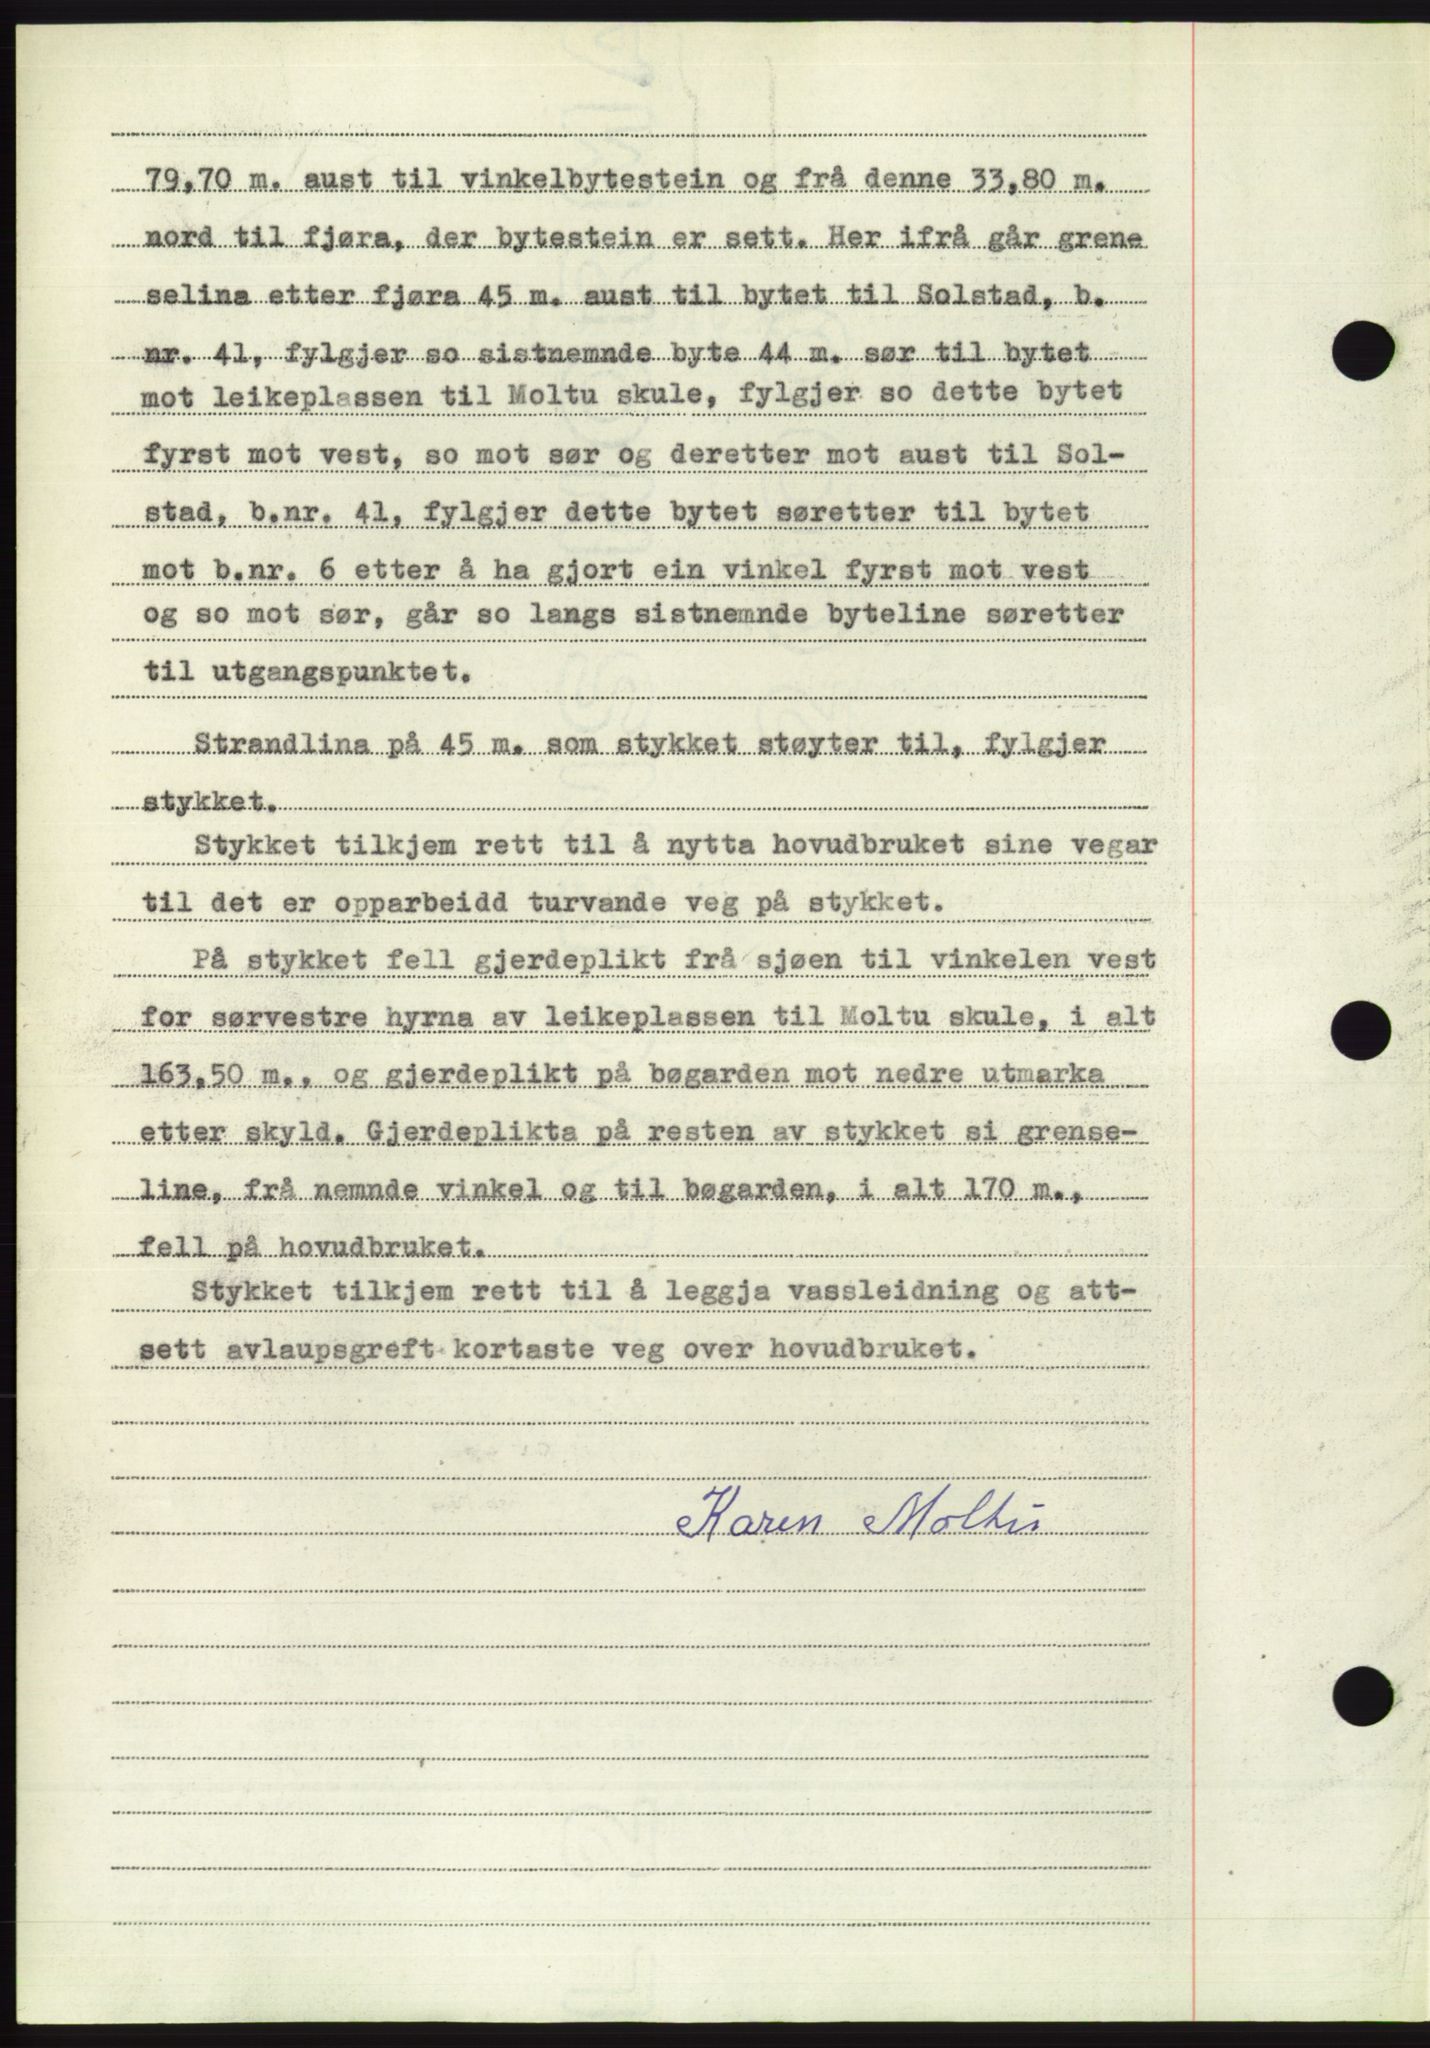 79,70 m. aust til vinkelbytestein og frå denne 33,80 m.
nord til fjøra, der bytestein er sett. Her ifrå går grene
selina etter fjøra 45 m. aust til bytet til Solstad, b.
nr. 41, fylgjer so sistnemnde byte 44 m. sør til bytet
mot leikeplassen til Moltu skule, fylgjer so dette bytet
fyrst mot vest, so mot sør og deretter mot aust til Sol-
stad, b.nr. 41, fylgjer dette bytet søretter til bytet
mot b.nr. 6 etter å ha gjort ein vinkel fyrst mot vest
og so mot sør, går so langs sistnemnde byteline søretter
til utgangspunktet.
Strandlina på 45 m. som stykket støyter til, fylgjer
stykket.
Stykket tilkjem rett til å nytta hovudbruket sine vegar
til det er opparbeidd turvande veg på stykket.
På stykket fell gjerdeplikt frå sjøen til vinkelen vest
for sørvestre hyrna av leikeplassen til Moltu skule, i alt
163,50 m., og gjerdeplikt på bøgarden mot nedre utmarka
etter skyld. Gjerdeplikta på resten av stykket si grense-
line, frå nemnde vinkel og til bøgarden, i alt 170 m.,
fell på hovudbruket.
Stykket tilkjem rett til å leggja vassleidning og att-
sett avlaupsgreft kortaste veg over hovudbruket.
Karen Moltu